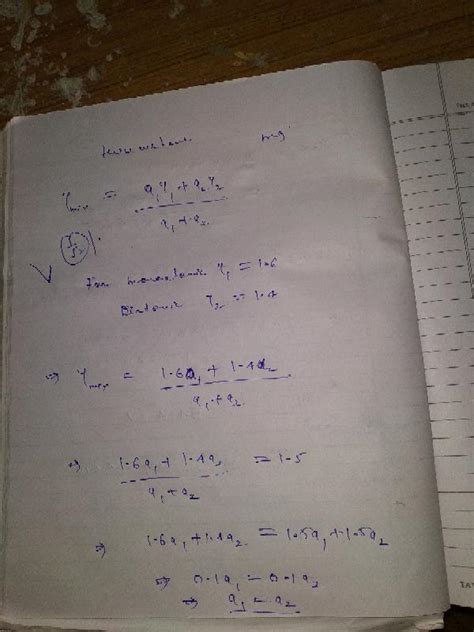 mg
γ_mix = a₁γ₁ + a₂γ₂ / a₁ + a₂
For monoatomic γ₁ = 1.6
Diatomic γ₂ = 1.4
⇒ γ_mix = 1.6a₁ + 1.4a₂ / a₁ + a₂
⇒ 1.6a₁ + 1.4a₂ / a₁ + a₂ = 1.5
⇒ 1.6a₁ + 1.4a₂ = 1.5a₁ + 1.5a₂
⇒ 0.1a₁ = 0.1a₂
⇒ a₁ = a₂